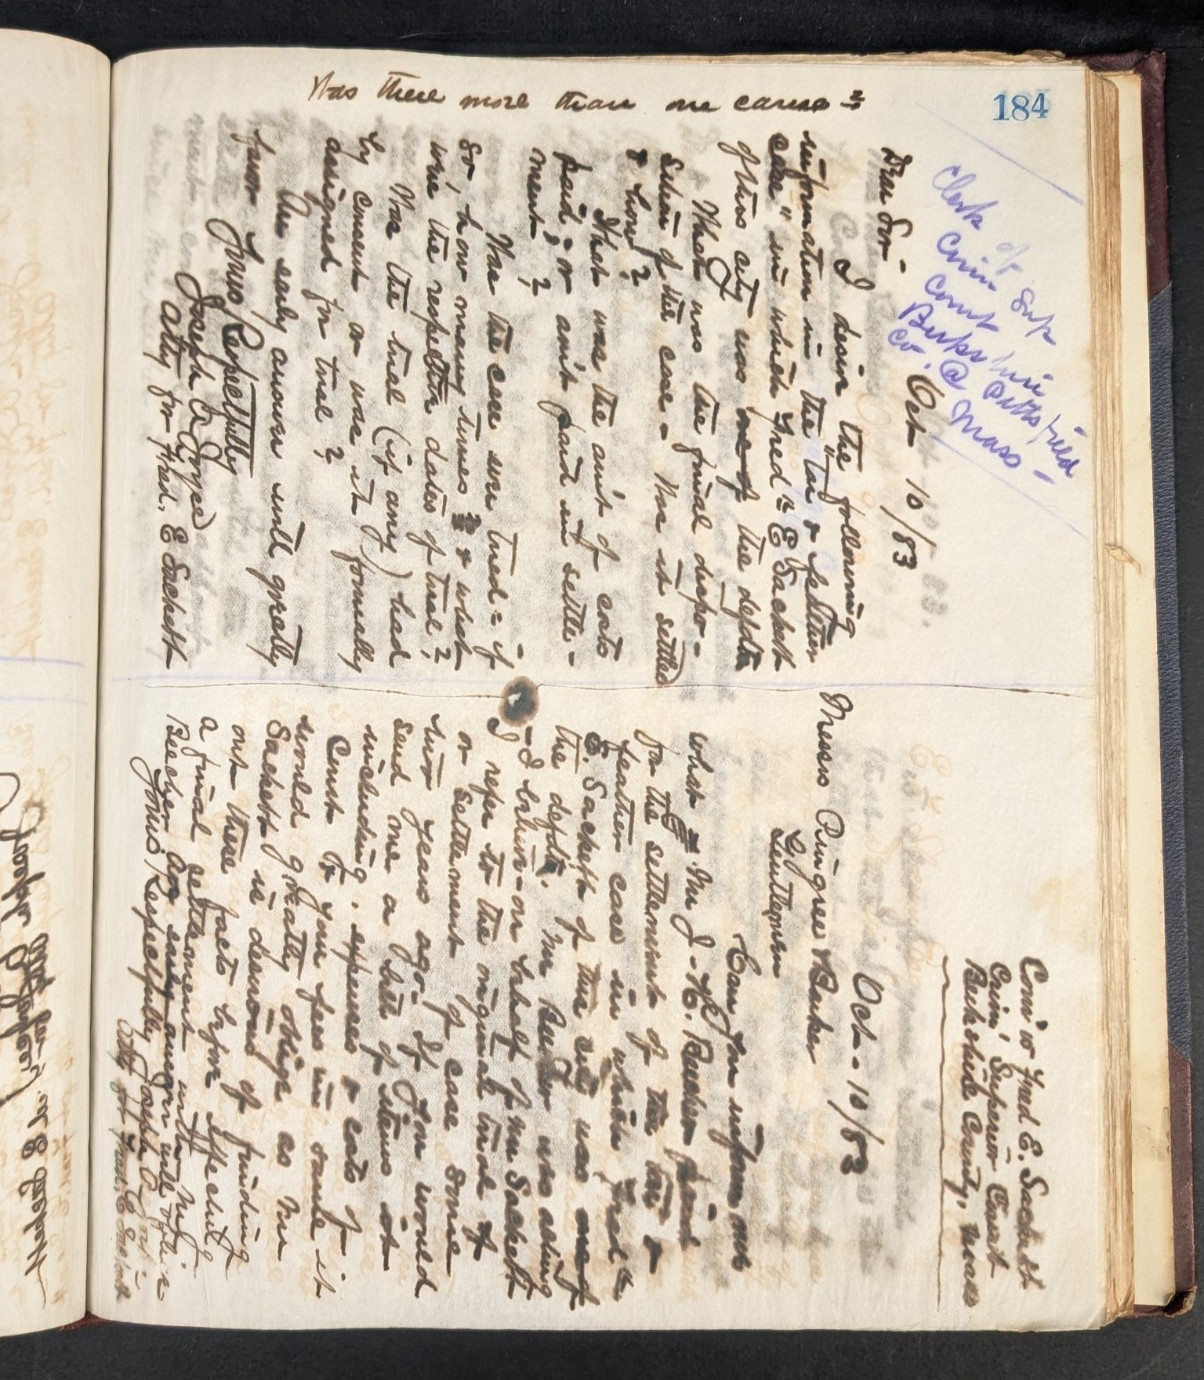 184
Was there more than one cause?
Clerk of
Crim Sup
Court
Berkshire
Co. @ Pittsfield
Mass -
Oct 10/83
Dear Sir -
I desire the following
information in the "tar & feather
case" in which Fred E Sackett
of this city was one of the defdts
What was the final dispo-
sition of the case - Was it settled
& how?
What was the am't of costs
paid, or am't paid in settle-
ment?
Was the case ever tried - if
so, how many times & what
were the respective dates of trial?
Was the trial (if any) had
by consent or was it formally
assigned for trial?
An early answer will greatly
favor Yours Respectfully
Joseph A Joyce
Atty for Fred. E Sackett
Com' w Fred E. Sackett
Crim' Superior Court
Berkshire County, Mass
Oct - 10/83
Messrs Pingree & Barker
Gentlemen
Can you inform me
what Mr J - K. Beecher paid
for the settlement of the tar &
feather case in which Fred
E. Sackett of this city was one of
the defdts. Mr Beecher was acting
- I believe - on behalf of Mr Sackett
I refer to the original trial of
or settlement of case some
two years ago. If you would
send me a bill of items not
including expenses & costs of
Court & your fees in same it
would greatly oblige as Mr
Sackett is desirous of finding
out these facts before effecting
a final settlement with Mr
Beecher. An early answer will oblige
Yours Respectfully Joseph A Joyce
Atty for Fred. E Sackett